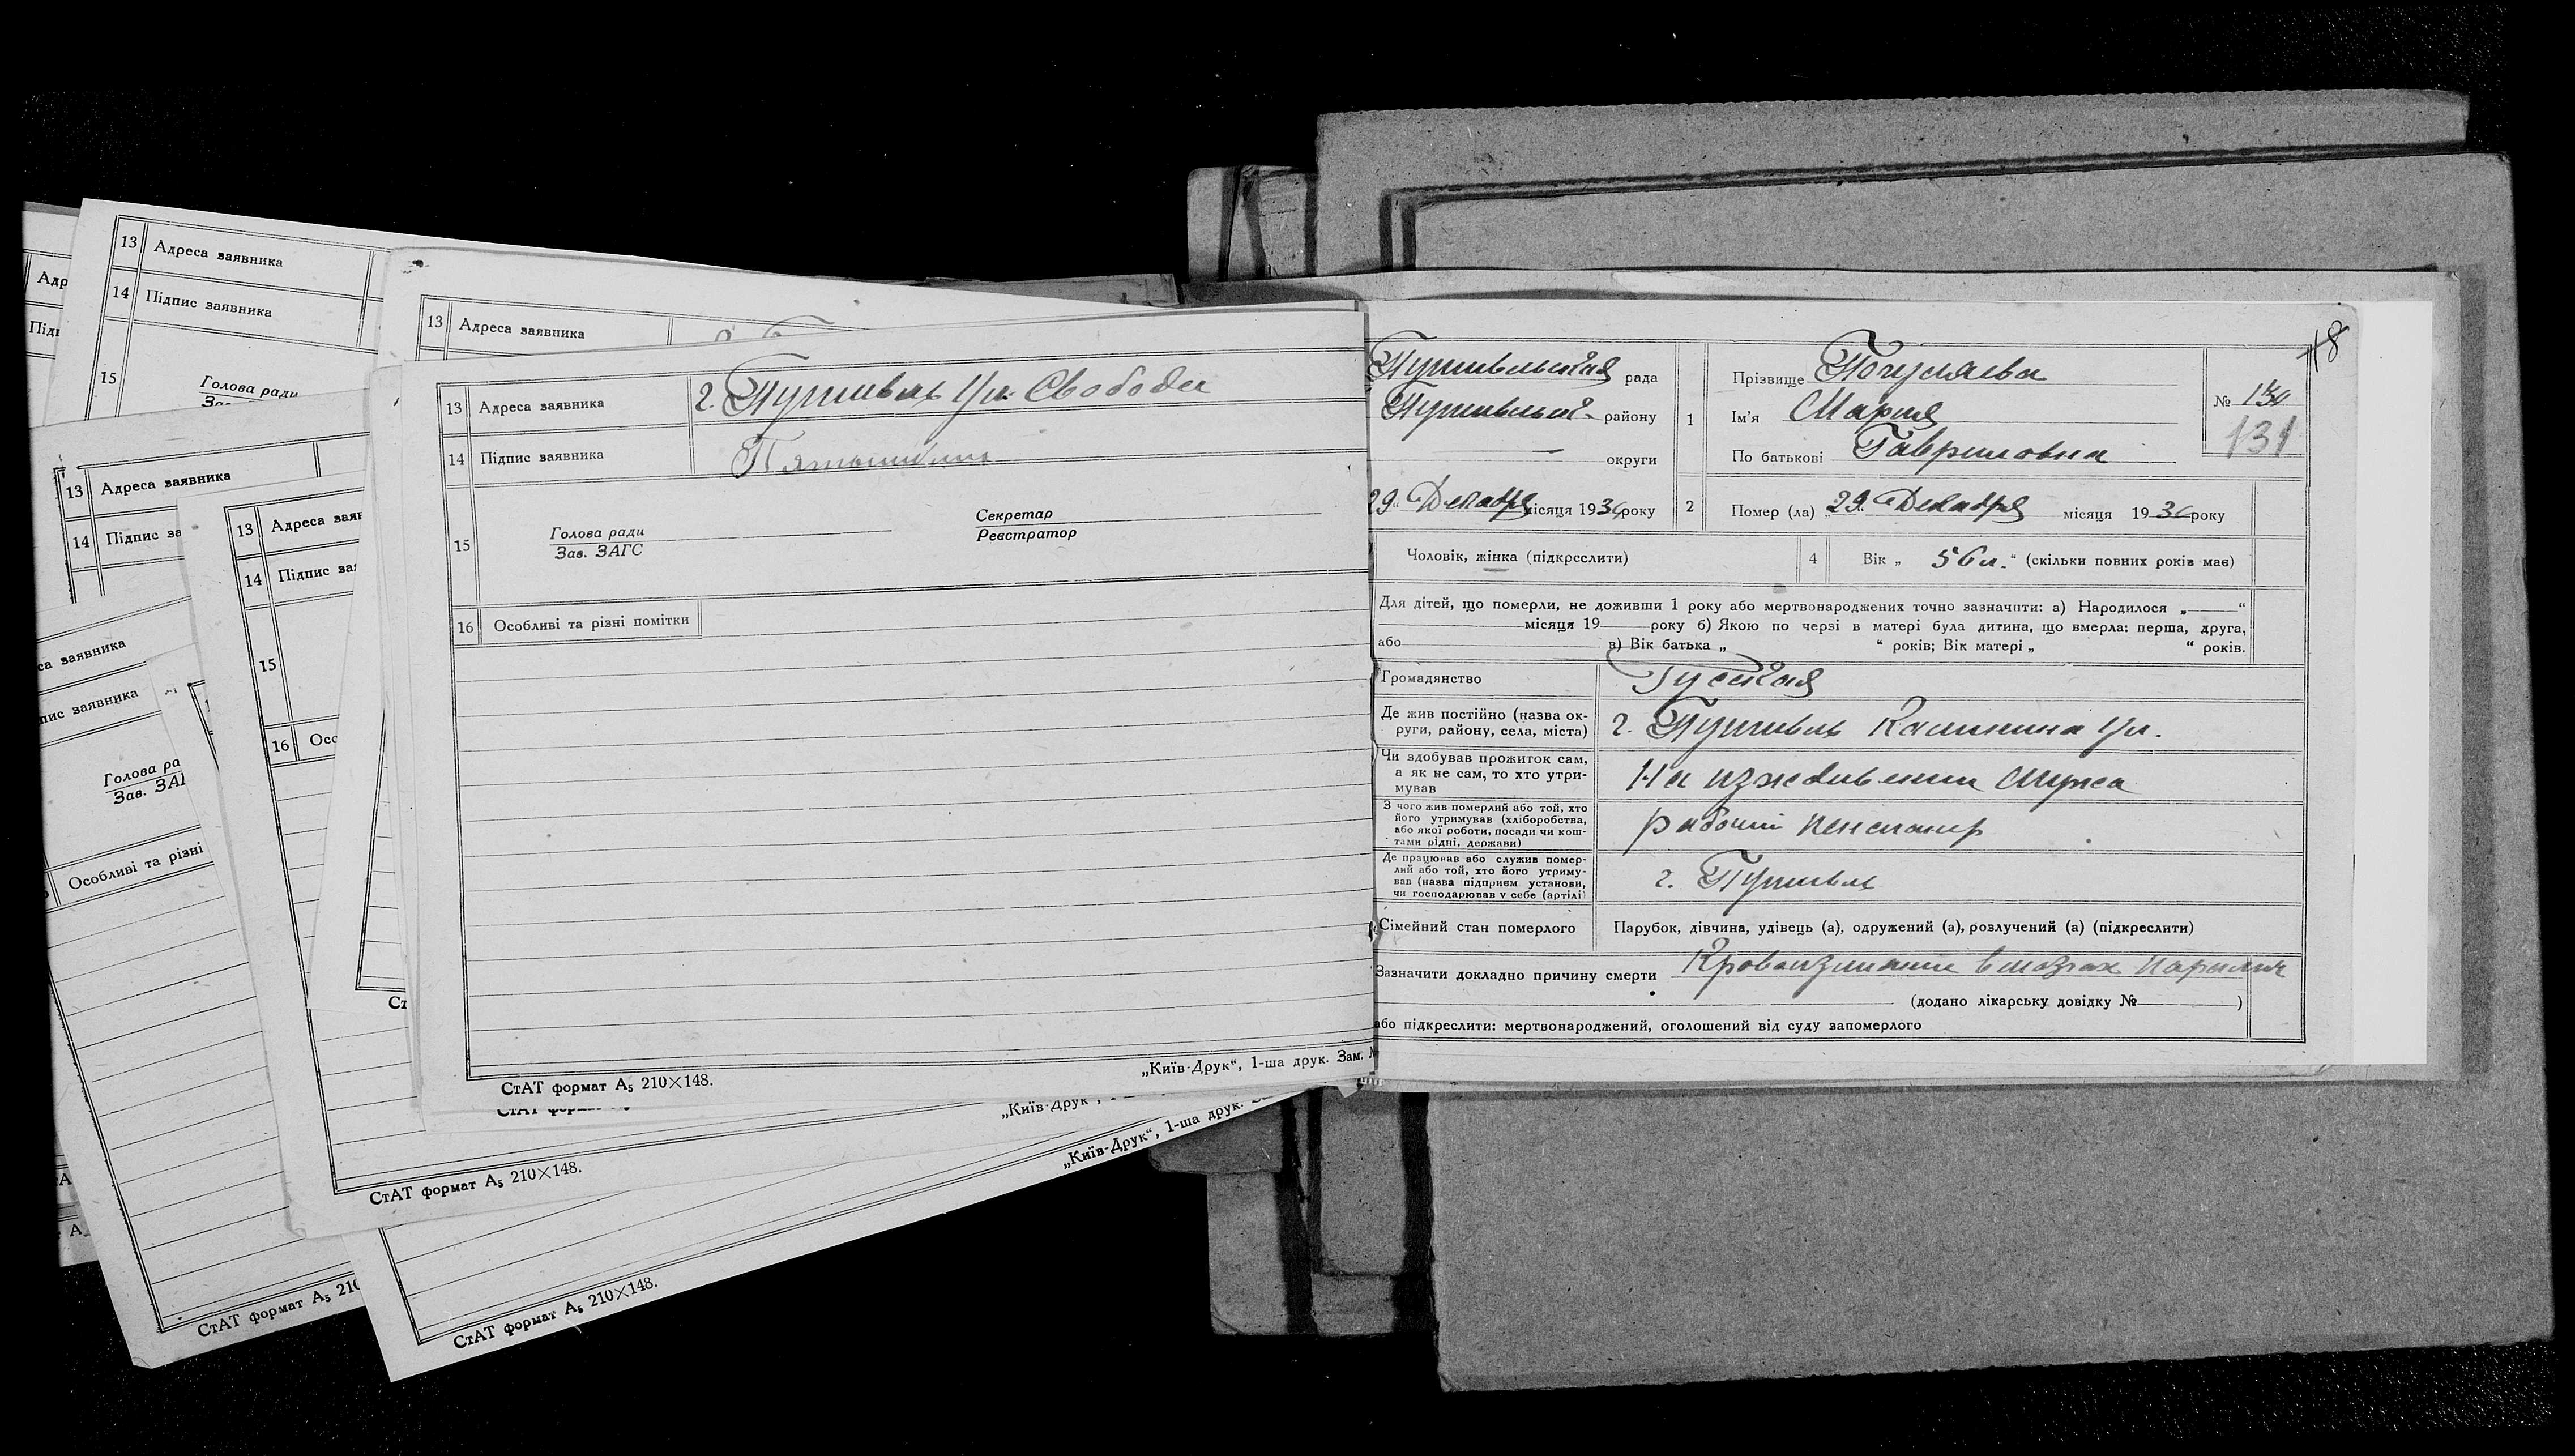 Адр
Підп
13 Адреса заявника
14 Підпис заявника
15 Голова ради
13 Адреса заявника
13 Адреса заявника
14 Підпис за
13 Адреса заяв
14 Підпис зая
15
16 Осо
са заявника
пис заявника
Голова ра
Зав. ЗАГ
Особливі та різні
13 Адреса заявника г. Путивль Ул. Свободы
14 Підпис заявника
15 Голова ради
Зав. ЗАГС
Секретар
Реєстратор
16 Особливі та різні помітки
СтАТ формат А₅ 210×148.
„Київ-Друк“, 1-ша друк. Зам. №
„Київ-Друк“,
„Київ-Друк“, 1-ша друк.
СтАТ формат А₅ 210×148.
СтАТ формат А₅ 210
СтАТ формат А₅ 210×148.
Путивльская рада
Путивльск. району
округи
29 Декабря місяця 1936 року
18
1 Прізвище
Ім'я Мария
По батькові Гавриловна
№ 131
131
2 Помер (ла) „29 Декабря місяця 1936 року
Чоловік, жінка (підкреслити)
4 Вік „ 56 л. “ (скільки повних років має)
Для дітей, що померли, не доживши 1 року або мертвонароджених точно зазначити: а) Народилося „ “
місяця 19 року б) Якою по черзі в матері була дитина, що вмерла: перша, друга,
або в) Вік батька „ “ років; Вік матері „ “ років.
Громадянство Русская
Де жив постійно (назва ок-
руги, району, села, міста) г. Путивль Калинина ул.
Чи здобував прожиток сам,
а як не сам, то хто утри-
мував На иждивении Мужа
З чого жив померлий або той, хто
його утримував (хліборобства,
або якої роботи, посади чи кош-
тами рідні, держави) рабочий пенсионер
Де працював або служив помер-
лий або той, хто його утриму-
вав (назва підприєм установи,
чи господарював у себе (артілі) г. Путивль
Сімейний стан померлого Парубок, дівчина, удівець (а), одружений (а), розлучений (а) (підкреслити)
Зазначити докладно причину смерти Кровоизлияние в мозгах паралич
(додано лікарську довідку № )
або підкреслити: мертвонароджений, оголошений від суду запомерлого